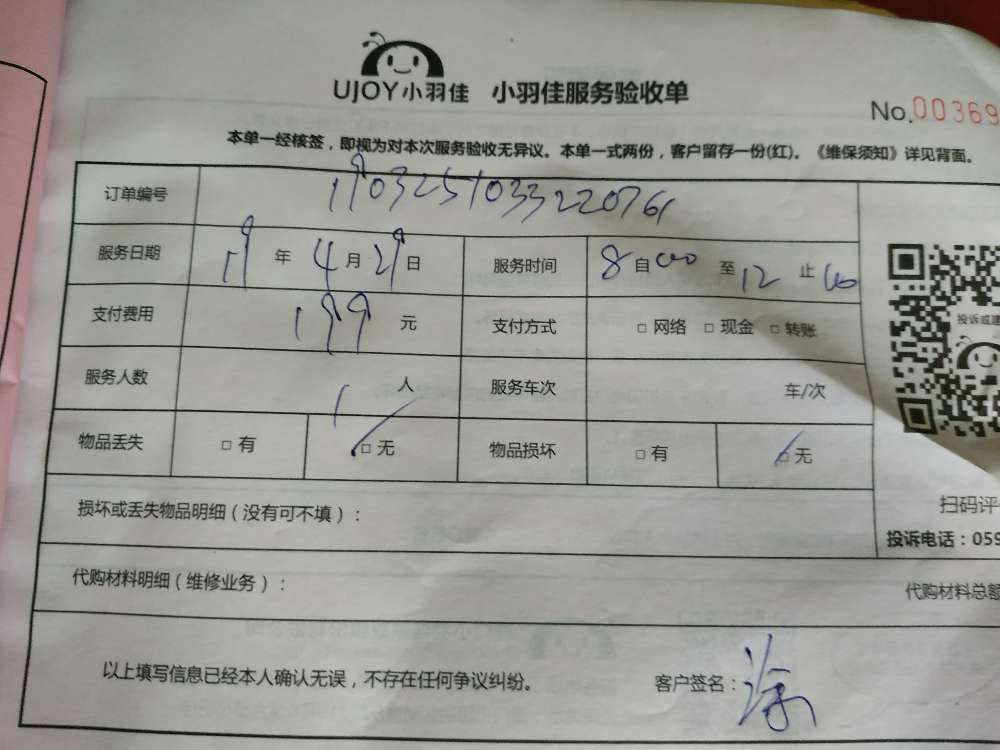 UJOY小羽佳 小羽佳服务验收单
No.00369
本单一经核签，即视为对本次服务验收无异议。本单一式两份，客户留存一份(红)。《维保须知》详见背面。
订单编号 190325103322076
服务日期 19年4月29日 服务时间 8自00至12止00
支付费用 199元 支付方式 □网络 □现金 □转账
服务人数 1人 服务车次 车/次
投诉或建
物品丢失 □有 □无 物品损坏 □有 □无
损坏或丢失物品明细（没有可不填）：
扫码评
投诉电话：059
代购材料明细（维修业务）： 代购材料总额
以上填写信息已经本人确认无误，不存在任何争议纠纷。 客户签名：涂